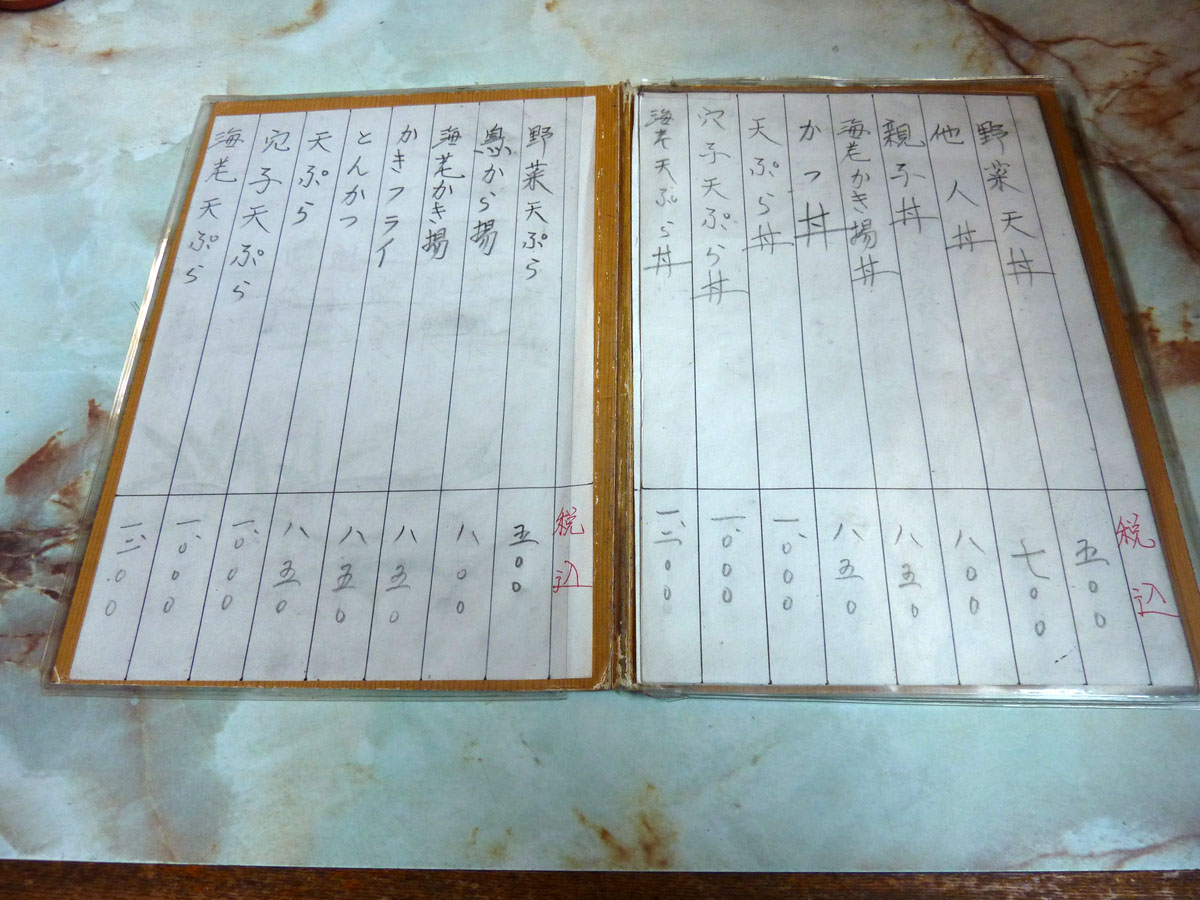 税込
野菜天丼 五〇〇
他人丼 七〇〇
親子丼 八〇〇
海老かき揚丼 八五〇
かつ丼 八五〇
天ぷら丼 一、〇〇〇
穴子天ぷら丼 一、〇〇〇
海老天ぷら丼 一、二〇〇
税込
野菜天ぷら 五〇〇
鳥から揚 八〇〇
海老かき揚 八五〇
かきフライ 八五〇
とんかつ 八五〇
天ぷら 一、〇〇〇
穴子天ぷら 一、〇〇〇
海老天ぷら 一、二〇〇